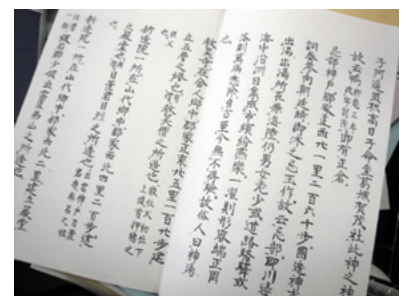 子阿遅須枳高日子命坐葛城賀茂社此神之神
戸故云鴨神亀三年改字賀茂即有正倉
忌部神戸郡家正西廿一里二百六十歩國造神吉
詞奏参向朝廷時御沐之忌玉作故云忌部即川邊
出湯出湯所在兼海陸仍男女老少或道路駱驛或
海中沿洲日集成市繽紛燕樂一濯則形容端正再
浴則萬病悉除自古至今無不得驗故俗人曰神湯
也
教昊寺在舎人郷中郡家正東廿五里一百廿歩建
立五層之塔也有僧教昊僧之所造也散位大初位下上腹首押猪之
祖父也
新造院一所在山代郷中郡家西北四里二百歩建
立嚴堂也無僧日置君目烈之所造也出雲神戸日置君猪麻呂之祖
也
新造院一所在山代郷中郡家西北二里建立嚴堂
住僧一躯飯石郡少領出雲臣弟山之所造也